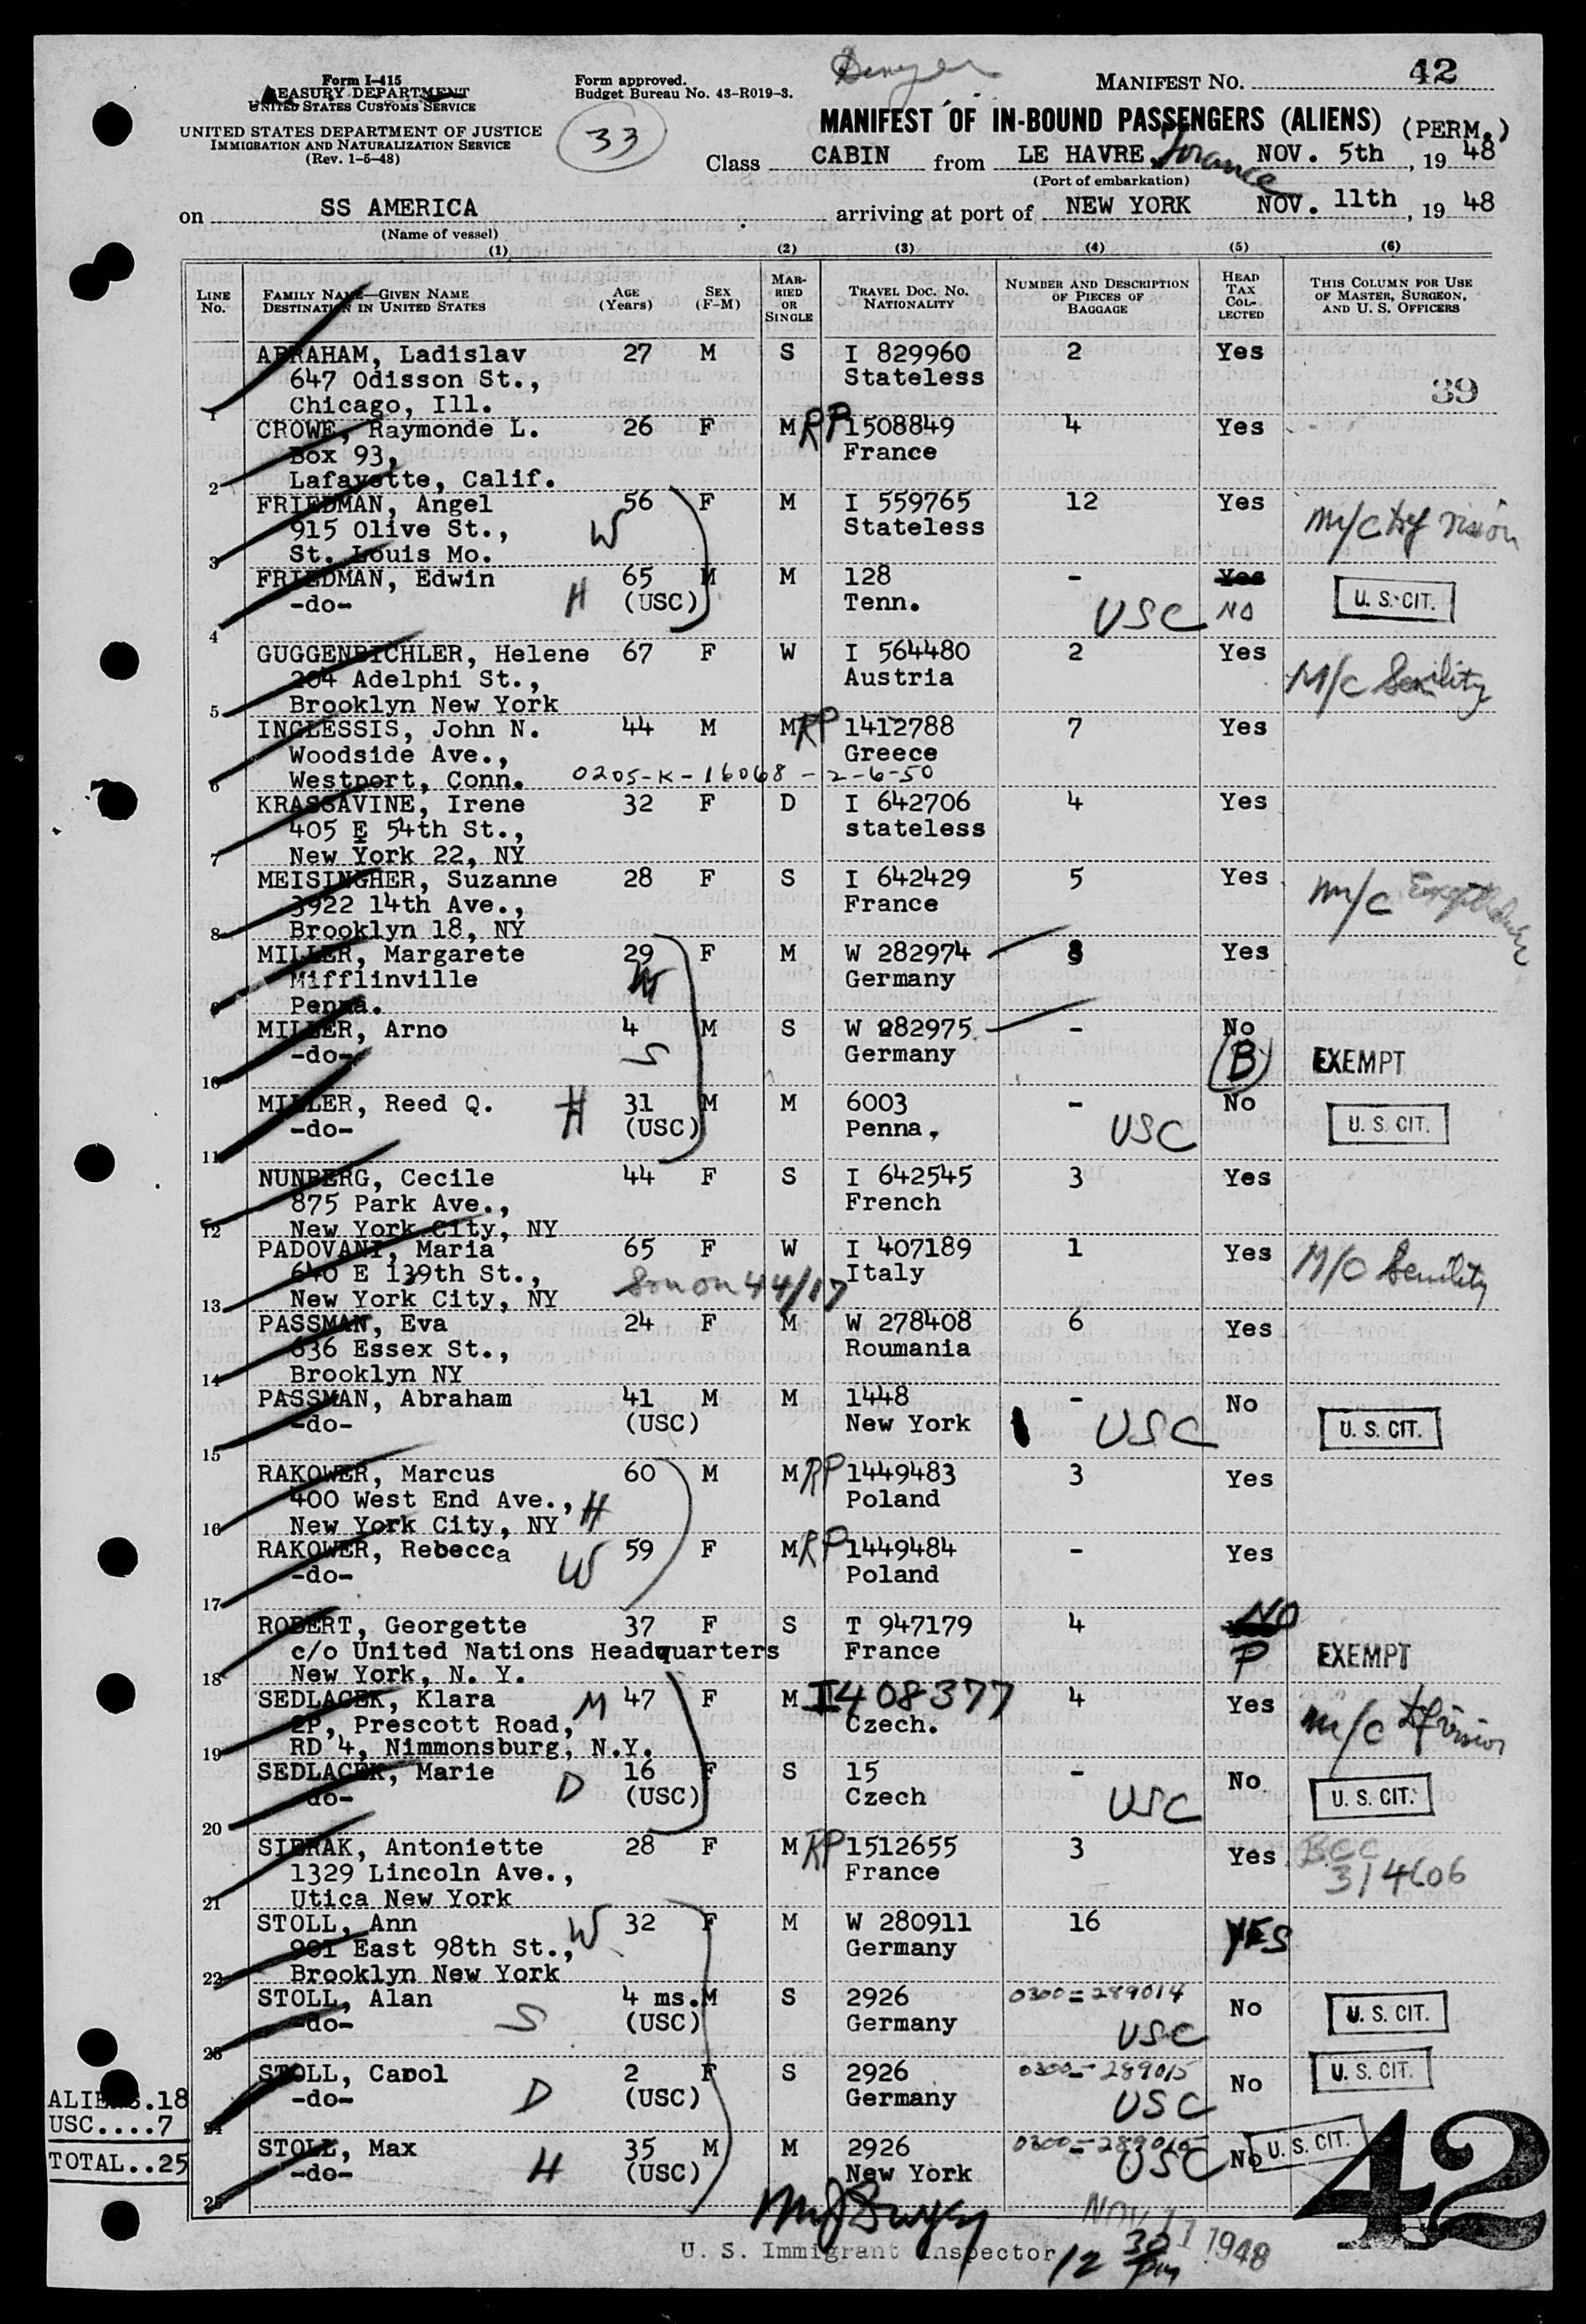 42
Form I-415
TREASURY DEPARTMENT
UNITED STATES CUSTOMS SERVICE
UNITED STATES DEPARTMENT OF JUSTICE
IMMIGRATION AND NATURALIZATION SERVICE
(Rev. 1-5-48)
Form approved.
Budget Bureau No. 43-R019-3.
33
MANIFEST NO. 42
MANIFEST OF IN-BOUND PASSENGERS (ALIENS) (PERM.)
Class CABIN from LE HAVRE, France NOV. 5th, 19 48
(Port of embarkation)
on SS AMERICA arriving at port of NEW YORK NOV. 11th, 19 48
(Name of vessel)
(1) (2) (3) (4) (5) (6)
LINE No.
FAMILY NAME—GIVEN NAME DESTINATION IN UNITED STATES
AGE (Years)
SEX (F-M)
MARRIED OR SINGLE
TRAVEL DOC. NO. NATIONALITY
NUMBER AND DESCRIPTION OF PIECES OF BAGGAGE
HEAD TAX COLLECTED
THIS COLUMN FOR USE OF MASTER, SURGEON, AND U. S. OFFICERS
ABRAHAM, Ladislav 27 M S I 829960 2 Yes
647 Odisson St., Stateless 39
1 Chicago, Ill.
CROWE, Raymonde L. 26 F M RP 1508849 4 Yes
Box 93, France
2 Lafayette, Calif.
FRIEDMAN, Angel 56 F M I 559765 12 Yes
915 Olive St., W Stateless m/c Def vision
3 St. Louis Mo.
FRIEDMAN, Edwin 65 M M 128 - Yes
-do- H (USC) Tenn. USC NO U. S. CIT.
4
GUGGENBICHLER, Helene 67 F W I 564480 2 Yes
204 Adelphi St., Austria M/c Senility
5 Brooklyn New York
INGLESSIS, John N. 44 M M RP 1412788 7 Yes
Woodside Ave., Greece
6 Westport, Conn. 0205-K-16068-2-6-50
KRASSAVINE, Irene 32 F D I 642706 4 Yes
405 E 54th St., stateless
7 New York 22, NY
MEISINGHER, Suzanne 28 F S I 642429 5 Yes
3922 14th Ave., France m/c
8 Brooklyn 18, NY
MILLER, Margarete 29 F M W 282974 8 Yes
Mifflinville Germany
9 Penna.
MILLER, Arno 4 M S W 282975 - No
-do- S Germany B EXEMPT
10
MILLER, Reed Q. H 31 M M 6003 - No
-do- (USC) Penna, USC U. S. CIT.
11
NUNBERG, Cecile 44 F S I 642545 3 Yes
875 Park Ave., French
12 New York City, NY
PADOVANI, Maria 65 F W I 407189 1 Yes
640 E 139th St., Italy M/C Senility
13 New York City, NY Son on 44/17
PASSMAN, Eva 24 F M W 278408 6 Yes
636 Essex St., Roumania
14 Brooklyn NY
PASSMAN, Abraham 41 M M 1448 - No
-do- (USC) New York USC U. S. CIT.
15
RAKOWER, Marcus 60 M M RP 1449483 3 Yes
400 West End Ave., H Poland
16 New York City, NY
RAKOWER, Rebecca 59 F M RP 1449484 - Yes
-do- W Poland
17
ROBERT, Georgette 37 F S T 947179 4 NO
c/o United Nations Headquarters France P EXEMPT
18 New York, N. Y.
SEDLACEK, Klara M 47 F M I408377 4 Yes
2P, Prescott Road, Czech. m/c Df vision
19 RD 4, Nimmonsburg, N.Y.
SEDLACEK, Marie 16 F S 15 - No
-do- D (USC) Czech USC U. S. CIT.
20
SIERAK, Antoniette 28 F M RP 1512655 3 Yes
1329 Lincoln Ave., France 314606
21 Utica New York
STOLL, Ann W 32 F M W 280911 16 YES
901 East 98th St., Germany
22 Brooklyn New York
STOLL, Alan 4 ms. M S 2926 0300-289014 No
-do- S (USC) Germany USC U. S. CIT.
23
STOLL, Carol 2 F S 2926 0300-289015 No
-do- D (USC) Germany USC U. S. CIT.
24
STOLL, Max 35 M M 2926 No U. S. CIT.
-do- H (USC) New York USC
25
ALIENS.18
USC....7
TOTAL..25
U. S. Immigrant Inspector
NOV 11 1948
12 30 pm
42